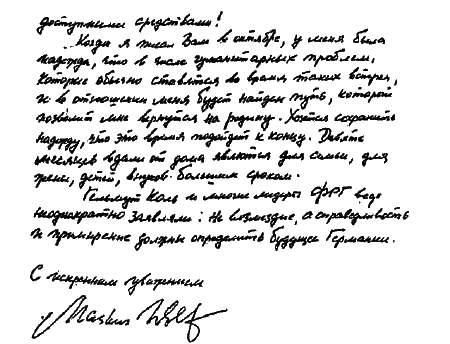 доступными средствами!
Когда я писал Вам в октябре, у меня была
надежда, что в числе гуманитарных проблем,
которые обычно ставятся во время таких встреч,
и в отношении меня будет найден путь, который
позволит мне вернуться на родину. Хочется сохранить
надежду, что это время подойдет к концу. Девять
месяцев вдали от дома являются для семьи, для
жены, детей, внуков большим сроком.
Гельмут Коль и многие лидеры ФРГ
неоднократно заявляли: Не возмездие, а справедливость
и примирение должны определить будущее Германии.
С искренним уважением
Markus Wolf